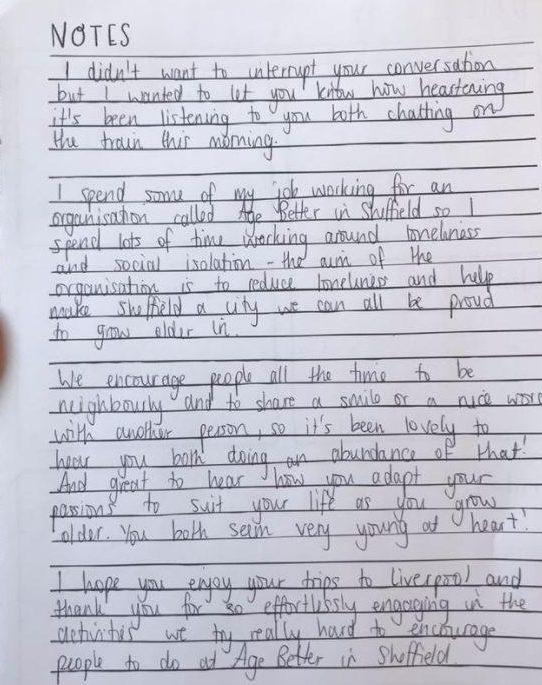 NOTES
I didn't want to interrupt your conversation
but I wanted to let you know how heartening
it's been listening to you both chatting on
the train this morning.
I spend some of my job working for an
organisation called Age Better in Sheffield so I
spend lots of time working around loneliness
and social isolation - the aim of the
organisation is to reduce loneliness and help
make Sheffield a city we can all be proud
to grow older in.
We encourage people all the time to be
neighbourly and to share a smile or a nice word
with another person, so it's been lovely to
hear you both doing an abundance of that!
And great to hear how you adapt your
passions to suit your life as you grow
older. You both seem very young at heart!
I hope you enjoy your trips to Liverpool and
thank you for so effortlessly engaging in the
activities we try really hard to encourage
people to do at Age Better in Sheffield.